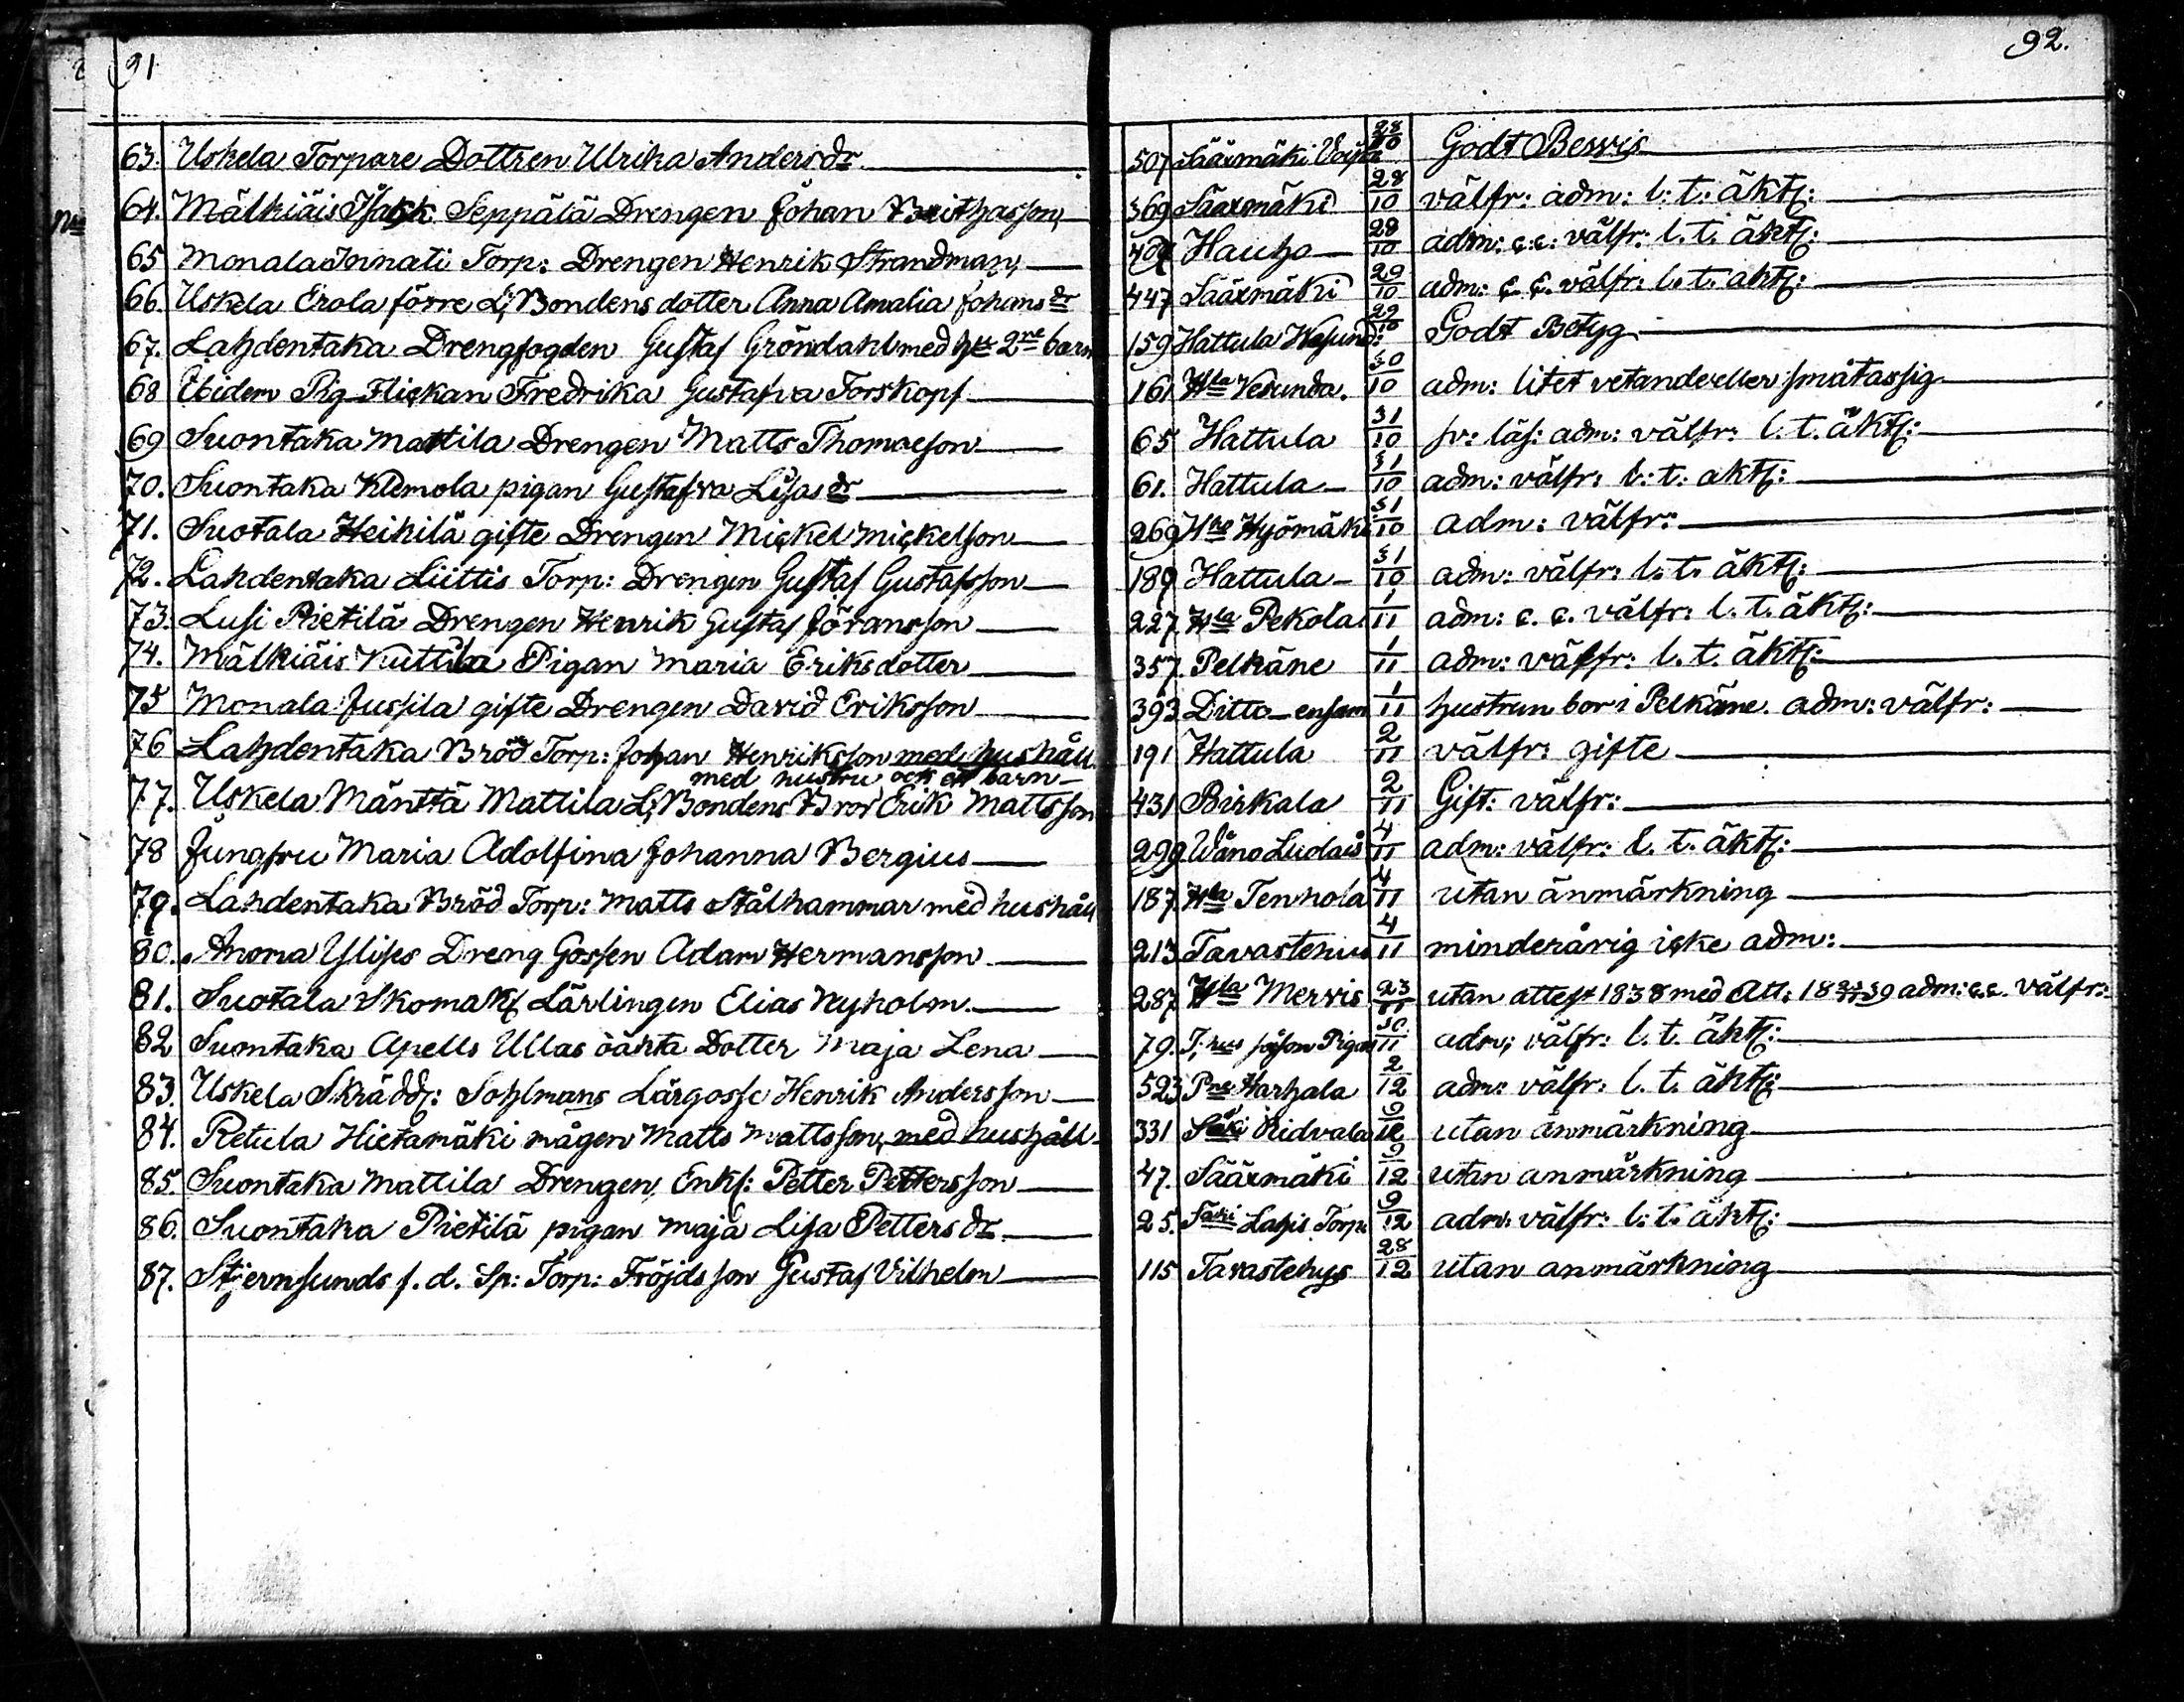 91
63. Uskela Torpare Dottren Ulrika Anders dr
64. Mälkiäis Isakk Seppälä Drengen Johan Brithasson
65 Monala Torp: Drengen Henrik Strandman
66. Uskela Erola förre L; Bondens dotter Anna Amalia Johans dr
67. Lahdentaka Drengfogden Gustaf Gröndahl med hu 2ne barn
68 Ebidem Pig Flickan Fredrika Gustafva Torskopf
69 Suontaka Mattila Drengen Matts Thomaeson
70. Suontaka Klemola pigan Gustafva Lisas dr
71. Suotala Heikilä gifte Drengen Mickel Mickelson
72. Lahdentaka Liittis Torp: Drengen Gustaf Gustafsson
73. Lusi Pietilä Drengen Henrik Gustaf Göransson
74. Mälkiäis Kuttila Pigan Maria Eriksdotter
75 Monala Jussila gifte Drengen David Eriksson
76 Lahdentaka Bröd Torp: Johan Henriksson med hushåll
med hustru och ett barn
77. Uskela Mänttä Mattila L; Bondens Bror Erik Mattsson
78 Jungfru Maria Adolfina Johanna Bergius
79. Lahdentaka Bröd Torp: Matts Stålhammar med hushåll
80. Anoma Ylises Dreng Gossen Adam Hermansson
81. Suotala Skomak: Lärlingen Elias Nyholm
82 Suontaka Apells Ullas oäkta Dotter Maja Lena
83. Uskela Skrädd: Sohlmans Lärgosse Henrik Andersson
84. Retula Hietamäki mågen Matts Mattsson, med hushåll
85. Suontaka Mattila Drengen, Enkl: Petter Pettersson
86. Suontaka Pietilä pigan Maja Lisa Petters dr
87. Stjernsunds f. d. Sp: Torp: Fröjds son Gustaf Vilhelm
92.
507 Sääxmäki 28/10 Godt Bewis
369 Sääxmäki 28/10 välfr: adm: l: t: äktf:
Hauho 28/10 adm: c: c: välfr: l. t. äktf:
447 Sääxmäki 29/10 adm: c. c. välfr: l. t. aktf:
159 Hattula Wesund: 29/10 Godt Betyg
161 Hla Vesunda. 30/10 adm: litet vetande eller småtassig
65 Hattula 31/10 sv: läs: adm: välfr: l. t. äktf:
61. Hattula 31/10 adm: välfr: l: t: aktf:
269 Hyömäki 31/10 adm: välfr:
189 Hattula 31/10 adm: välfr: l. t. äktf:
227. Hla Pekola 1/11 adm: c. c. välfr: l. t. äktf:
357. Pelkäne 1/11 adm: välfr: l. t. äktf:
393 Ditto ensam 1/11 hustrun bor i Pelkäne. adm: välfr:
191 Hattula 2/11 välfr: gifte
431 Birkala 2/11 Gift: välfr:
299 Wåno Ludais 4/11 adm: välfr: l. t. äktf:
187. Hla Tenhola 4/11 utan änmärkning
213 Tavastehus 4/11 minderårig icke adm:
287 Hla Mervis 23/11 utan attest 1838 med Att: 18 39 adm: c. c. välfr:
79. 30/11 adm; välfr: l. t. äktf:
523 Pne Harhala 2/12 adm: välfr: l. t. äktf:
331 Säki Ridvala 9/12 utan änmärkning
47. Sääxmäki 9/12 utan anmärkning
25. Säxi Lahis Torp: 9/12 adm: välfr: l: t. äktf:
115 Tavastehus 28/12 utan anmärkning